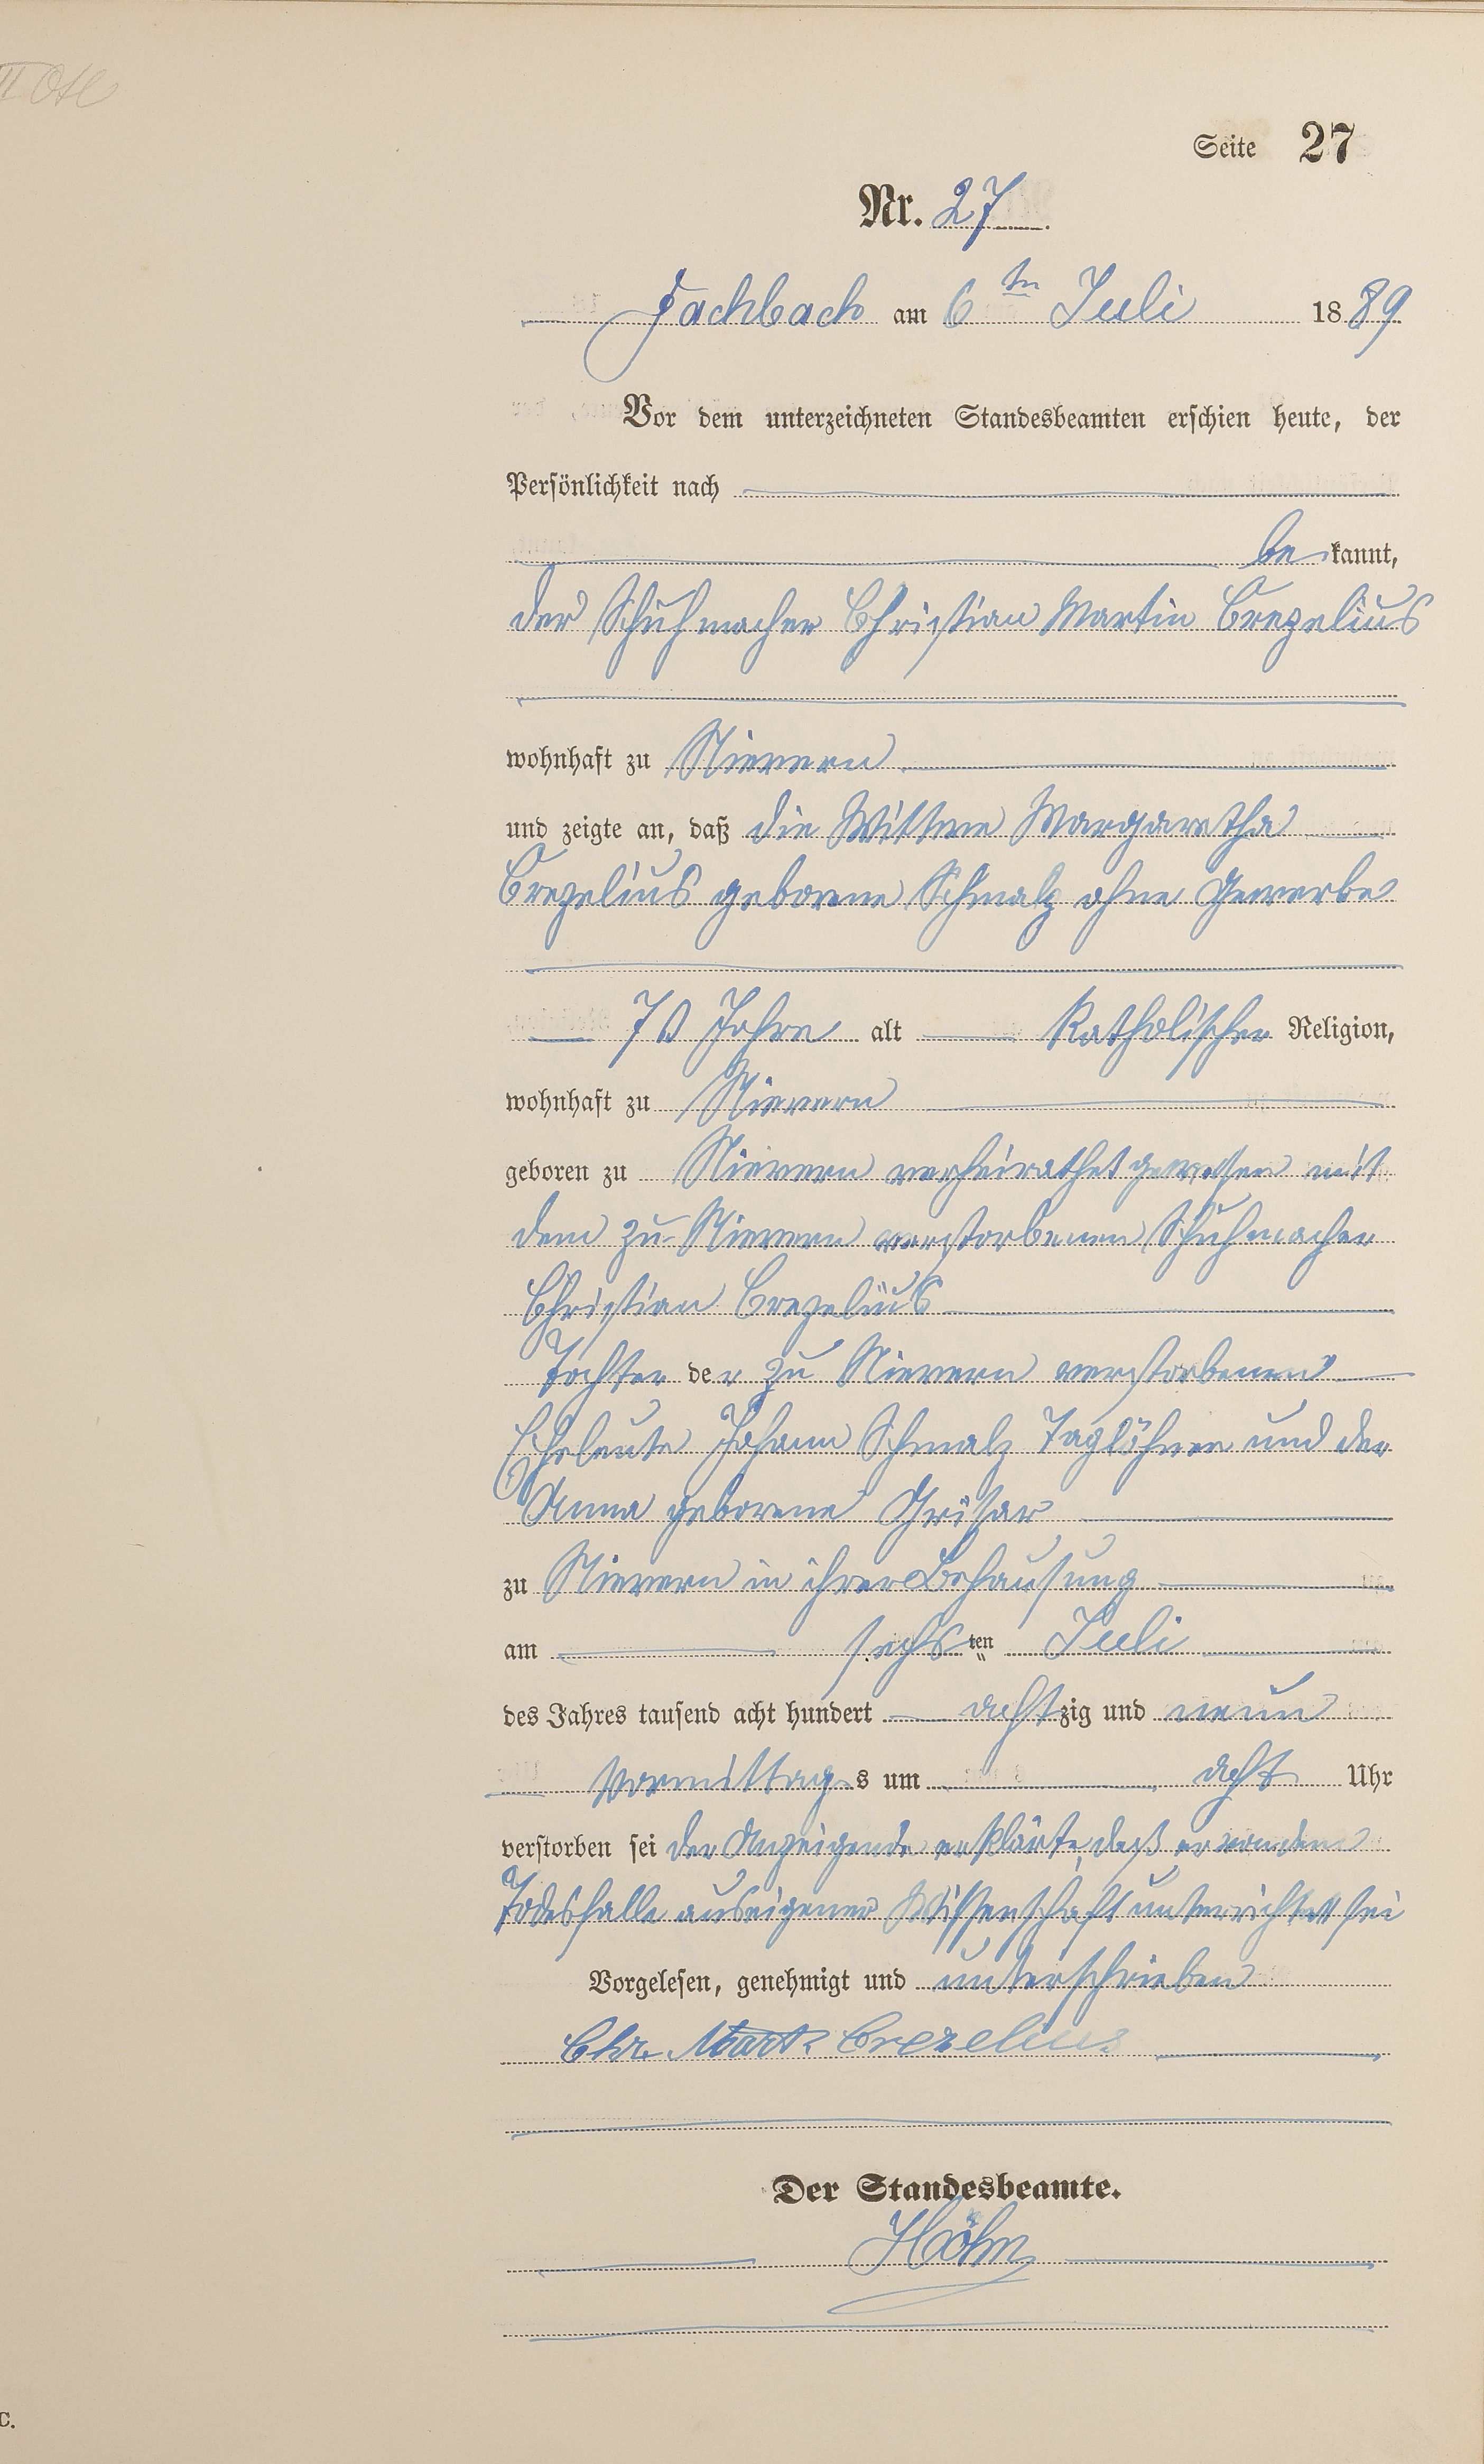 Seite 27
Nr. 27
Fachbach am 6ten Juli 1889
Vor dem unterzeichneten Standesbeamten erschien heute, der
Persönlichkeit nach
bekannt,
der Schuhmacher Christian Martin Crezelius
wohnhaft zu Nievern
und zeigte an, daß die Wittwe Margaretha
Crezelius geborene Schmalz ohne Gewerbe
70 Jahre alt katholischer Religion,
wohnhaft zu Nievern
geboren zu Nievern verheirathet gewesen mit
dem zu Nievern verstorbenen Schuhmacher
Christian Crezelius
Tochter der zu Nievern verstorbenen
Eheleute Johann Schmalz Taglöhner und der
Anna geborene Grisar
zu Nievern in ihrer Behausung
am sechsten Juli
des Jahres tausend acht hundert achtzig und neun
Vormittags um acht Uhr
verstorben sei der Anzeigende erklärte, daß er von dem
Todesfalle aus eigener Wissenschaft unterrichtet sei
Vorgelesen, genehmigt und unterschrieben
Chr. Mart. Crezelius
Der Standesbeamte.
Höhn
C.